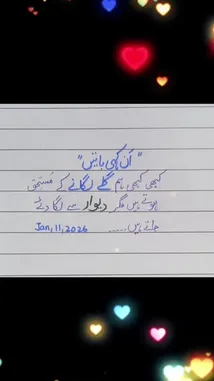 "ان کہی باتیں"
کبھی کبھی ہم گلے لگانے کے مستحق
ہوتے ہیں مگر دیوار سے لگا دئے
جاتے ہیں.....
Jan,11,2026